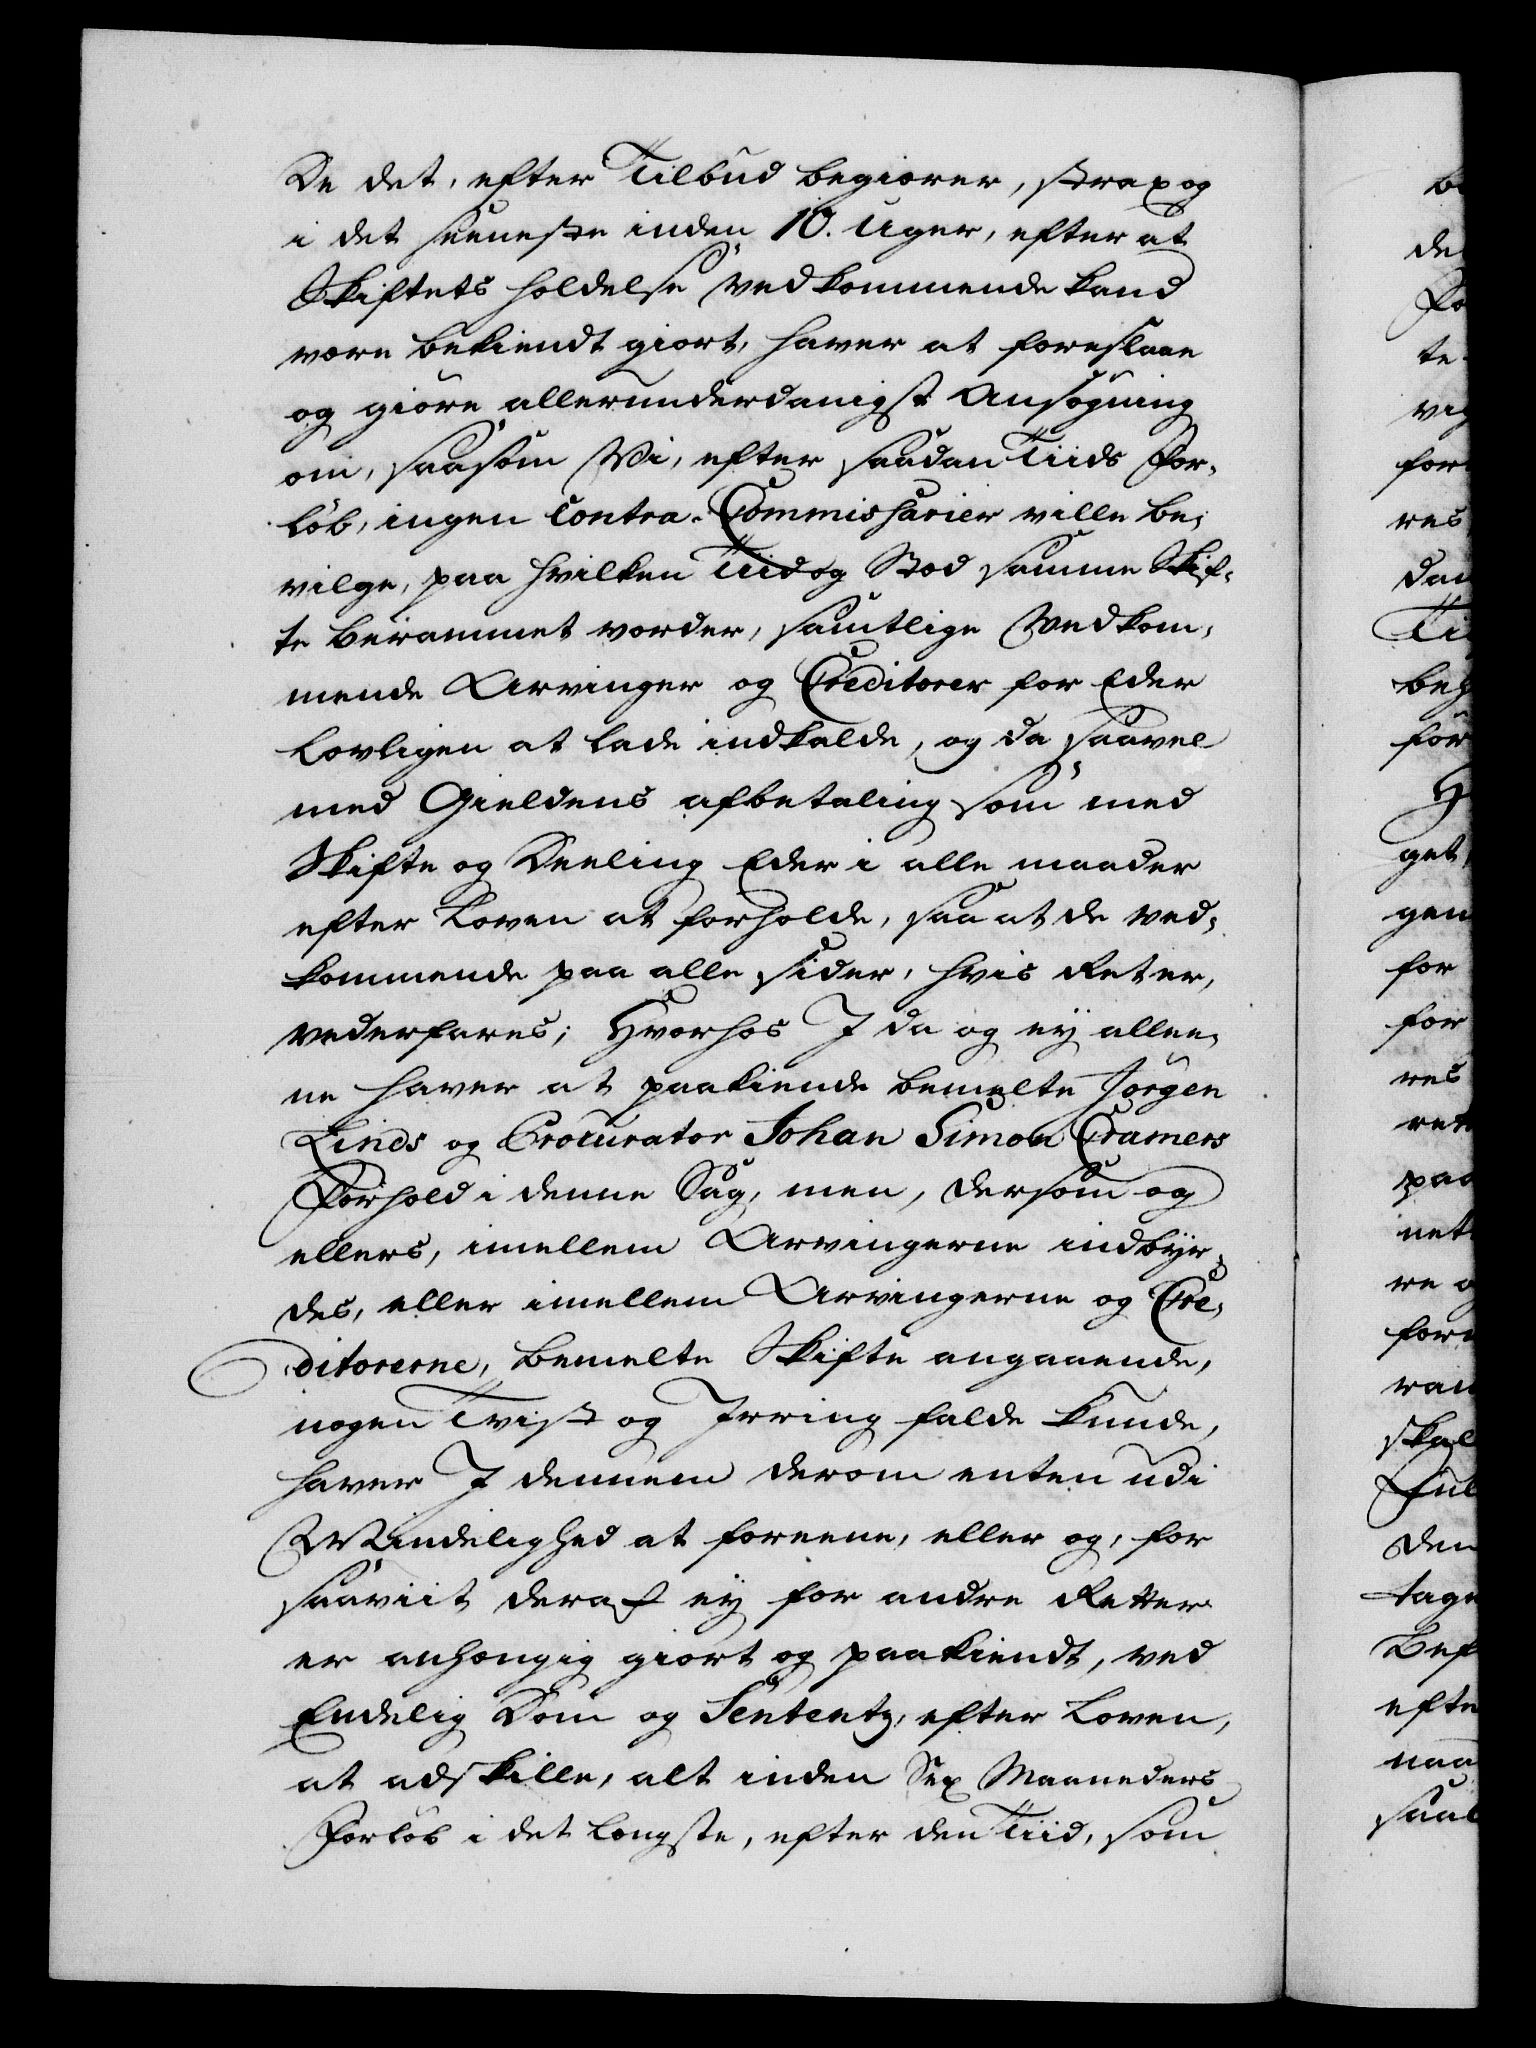 De det, efter Tilbud begiærer, strax og
i det seeneste inden 10. Uger, efter at
Skiftets holdelse vedkommende kand
være bekiendt giort, haver at foreslaae
og giøre allerunderdanigst Ansøgning
om, saasom Vi, efter saadan Tiids For-
løb, ingen Contra-Commissarier ville be-
vilge, paa hvilken Tiid og Stæd samme Skif-
te berammet vorder, samtlige Vedkom-
mende Arvinger og Creditorer for Eder
lovligen at lade indkalde, og da saavel
med Gieldens afbetaling som med
Skifte og Deeling Eder i alle maader
efter Loven at forholde, saa at de ved-
kommende paa alle sider, hvis Ret er,
vederfares; Hvorhos I da og ey allee-
ne haver at paakiende bemelte Jørgen
Linds og Procurator Johan Simon Cramers
Forhold i denne Sag, men, dersom og
ellers, imellem Arvingerne indbyr-
des, eller imellem Arvingerne og Cre-
ditorerne, bemelte Skifte angaaende,
nogen Tvist og Irring falde kunde,
haver I dennem derom enten udi
Mindelighed at foreene, eller og, for
saaviit deraf ey for andre Retter
er anhængig giort og paakiendt, ved
Endelig Dom og Sententz, efter Loven,
at adskille, alt inden Sex Maaneders
Forløb i det længste, efter den Tiid, som